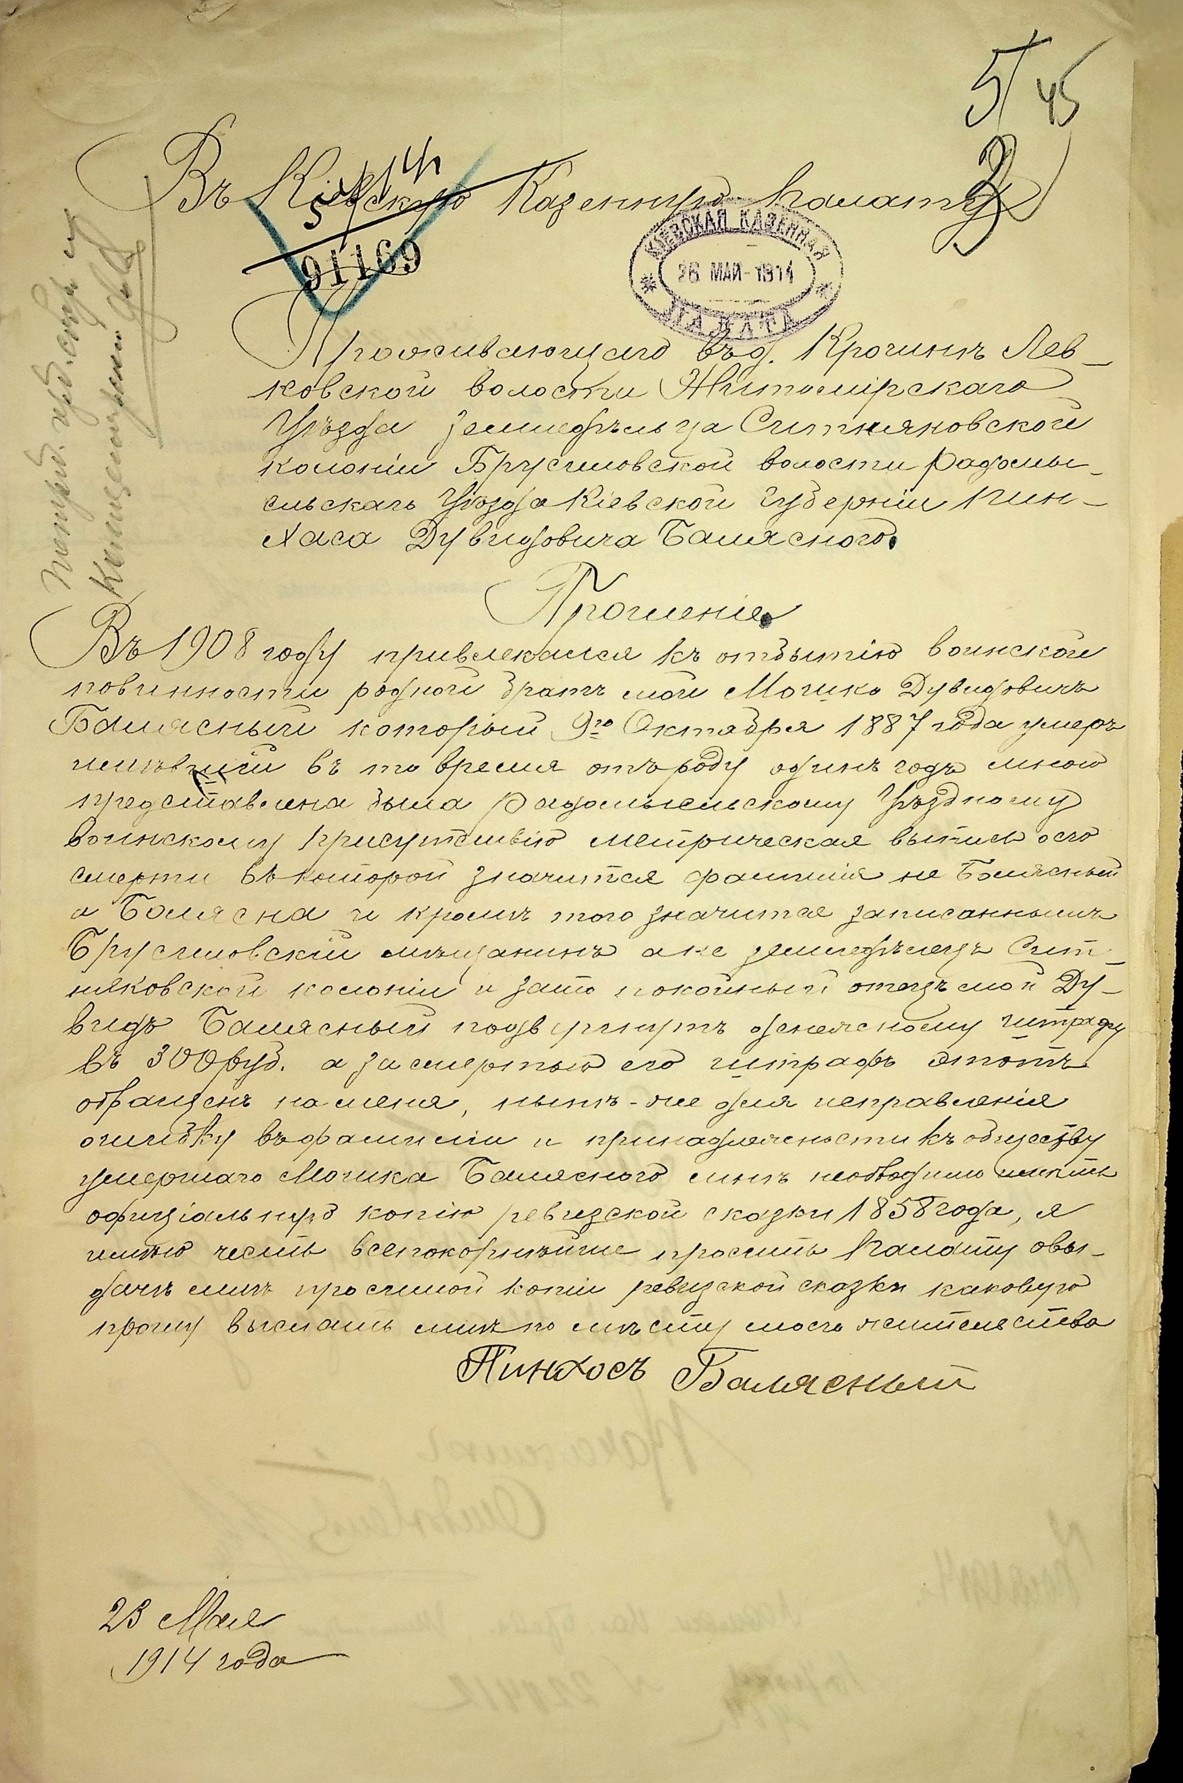 5 45
3
Въ Кіевскую Казенную Палату
5/14
91169
КІЕВСКАЯ КАЗЕННАЯ
26 МАЙ 1914
ПАЛАТА
Проживающаго въ д. Крочинъ Лев-
ковской волости Житомірскаго
Уѣзда земледѣльца Ситняковской
колоніи Брусиловской волости Радомы-
сльскаго Уѣзда Кіевской Губерніи Пин-
хаса Дувидовича Балясного.
Прошеніе.
Въ 1908 году привлекался къ отбытію воинской
повинности родной братъ мой Мошко Дувидовичъ
Балясный который 9го Октября 1887 года умеръ
имѣвшій въ то время отъ роду одинъ годъ мною
представлена была Радомысльскому Уѣздному
воинскому Присутствію метрическая выпись о его
смерти въ которой значится фамилія не Балясный
а Балясна и кромѣ того значится записаннымъ
Брусиловскій мѣщанинъ а не земледѣлецъ Сит-
няковской колоніи и зато покойный отецъ мой Ду-
видъ Балясный подвергнутъ денежному штрафу
въ 300 руб. а за смертью его штрафъ этотъ
обращенъ на меня, нынѣ-же для исправленія
ошибку въ фамиліи и принадлежности къ обществу
умершаго Мошка Балясного мнѣ необходимо имѣть
офиціальную копію ревизской сказки 1858 года, я
имѣю честь всепокорнѣйше просить Палату о вы-
дачѣ мнѣ просимой копіи ревизской сказки каковую
прошу выслать мнѣ по мѣсту моего жительства
Пинхосъ Балясный
23 Мая
1914 года